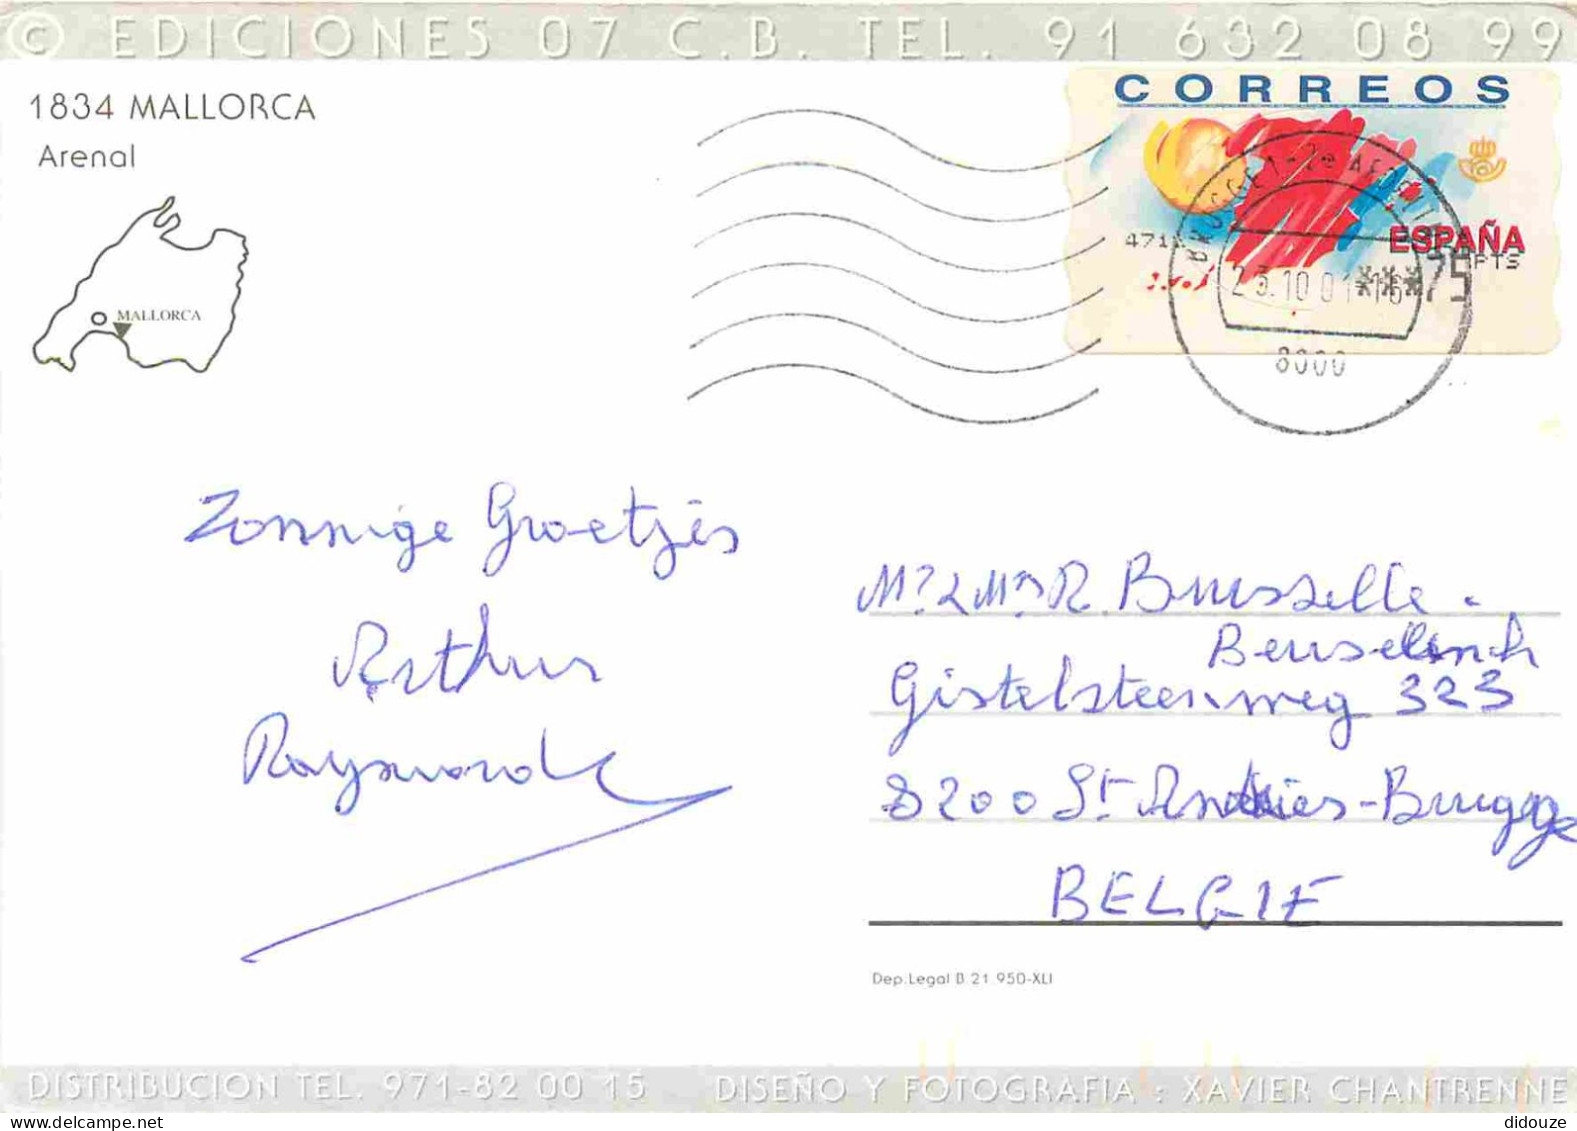 © EDICIONES 07 C.B. TEL. 91 632 08 99
1834 MALLORCA
Arenal
MALLORCA
CORREOS
ESPAÑA
PTS
***75
23.10.01-16
8000
Zonnige Groetjes
Arthur
Raymonde
Mr & Ms R. Brusselle.
Beuselinch
Gistelsteenweg 323
8200 St Andries-Brugge
BELGIE
Dep.Legal B.21 950-XLI
DISTRIBUCION TEL. 971-82 00 15 DISEÑO Y FOTOGRAFIA : XAVIER CHANTRENNE
didouze